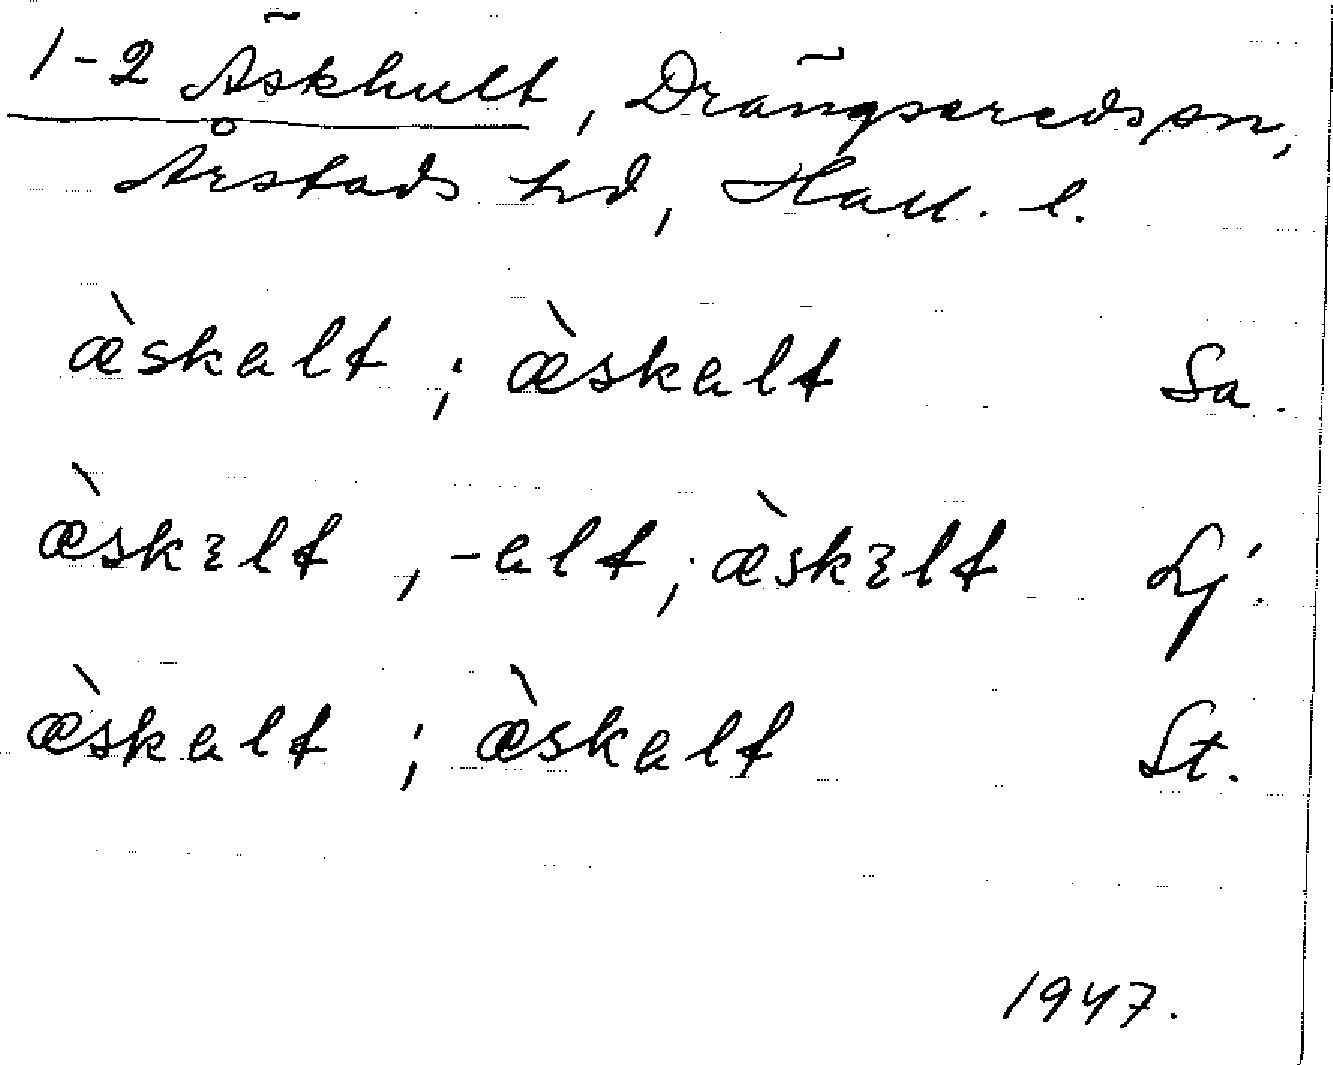 1-2 Äskhult, Drängsereds sn,
Årstads hd, Hall. l.
æ̀skalt ; æ̀skalt Sa.
æ̀skɛlt, -alt; æ̀skɛlt Lj.
æ̀skalt ; æ̀skalt St.
1947.